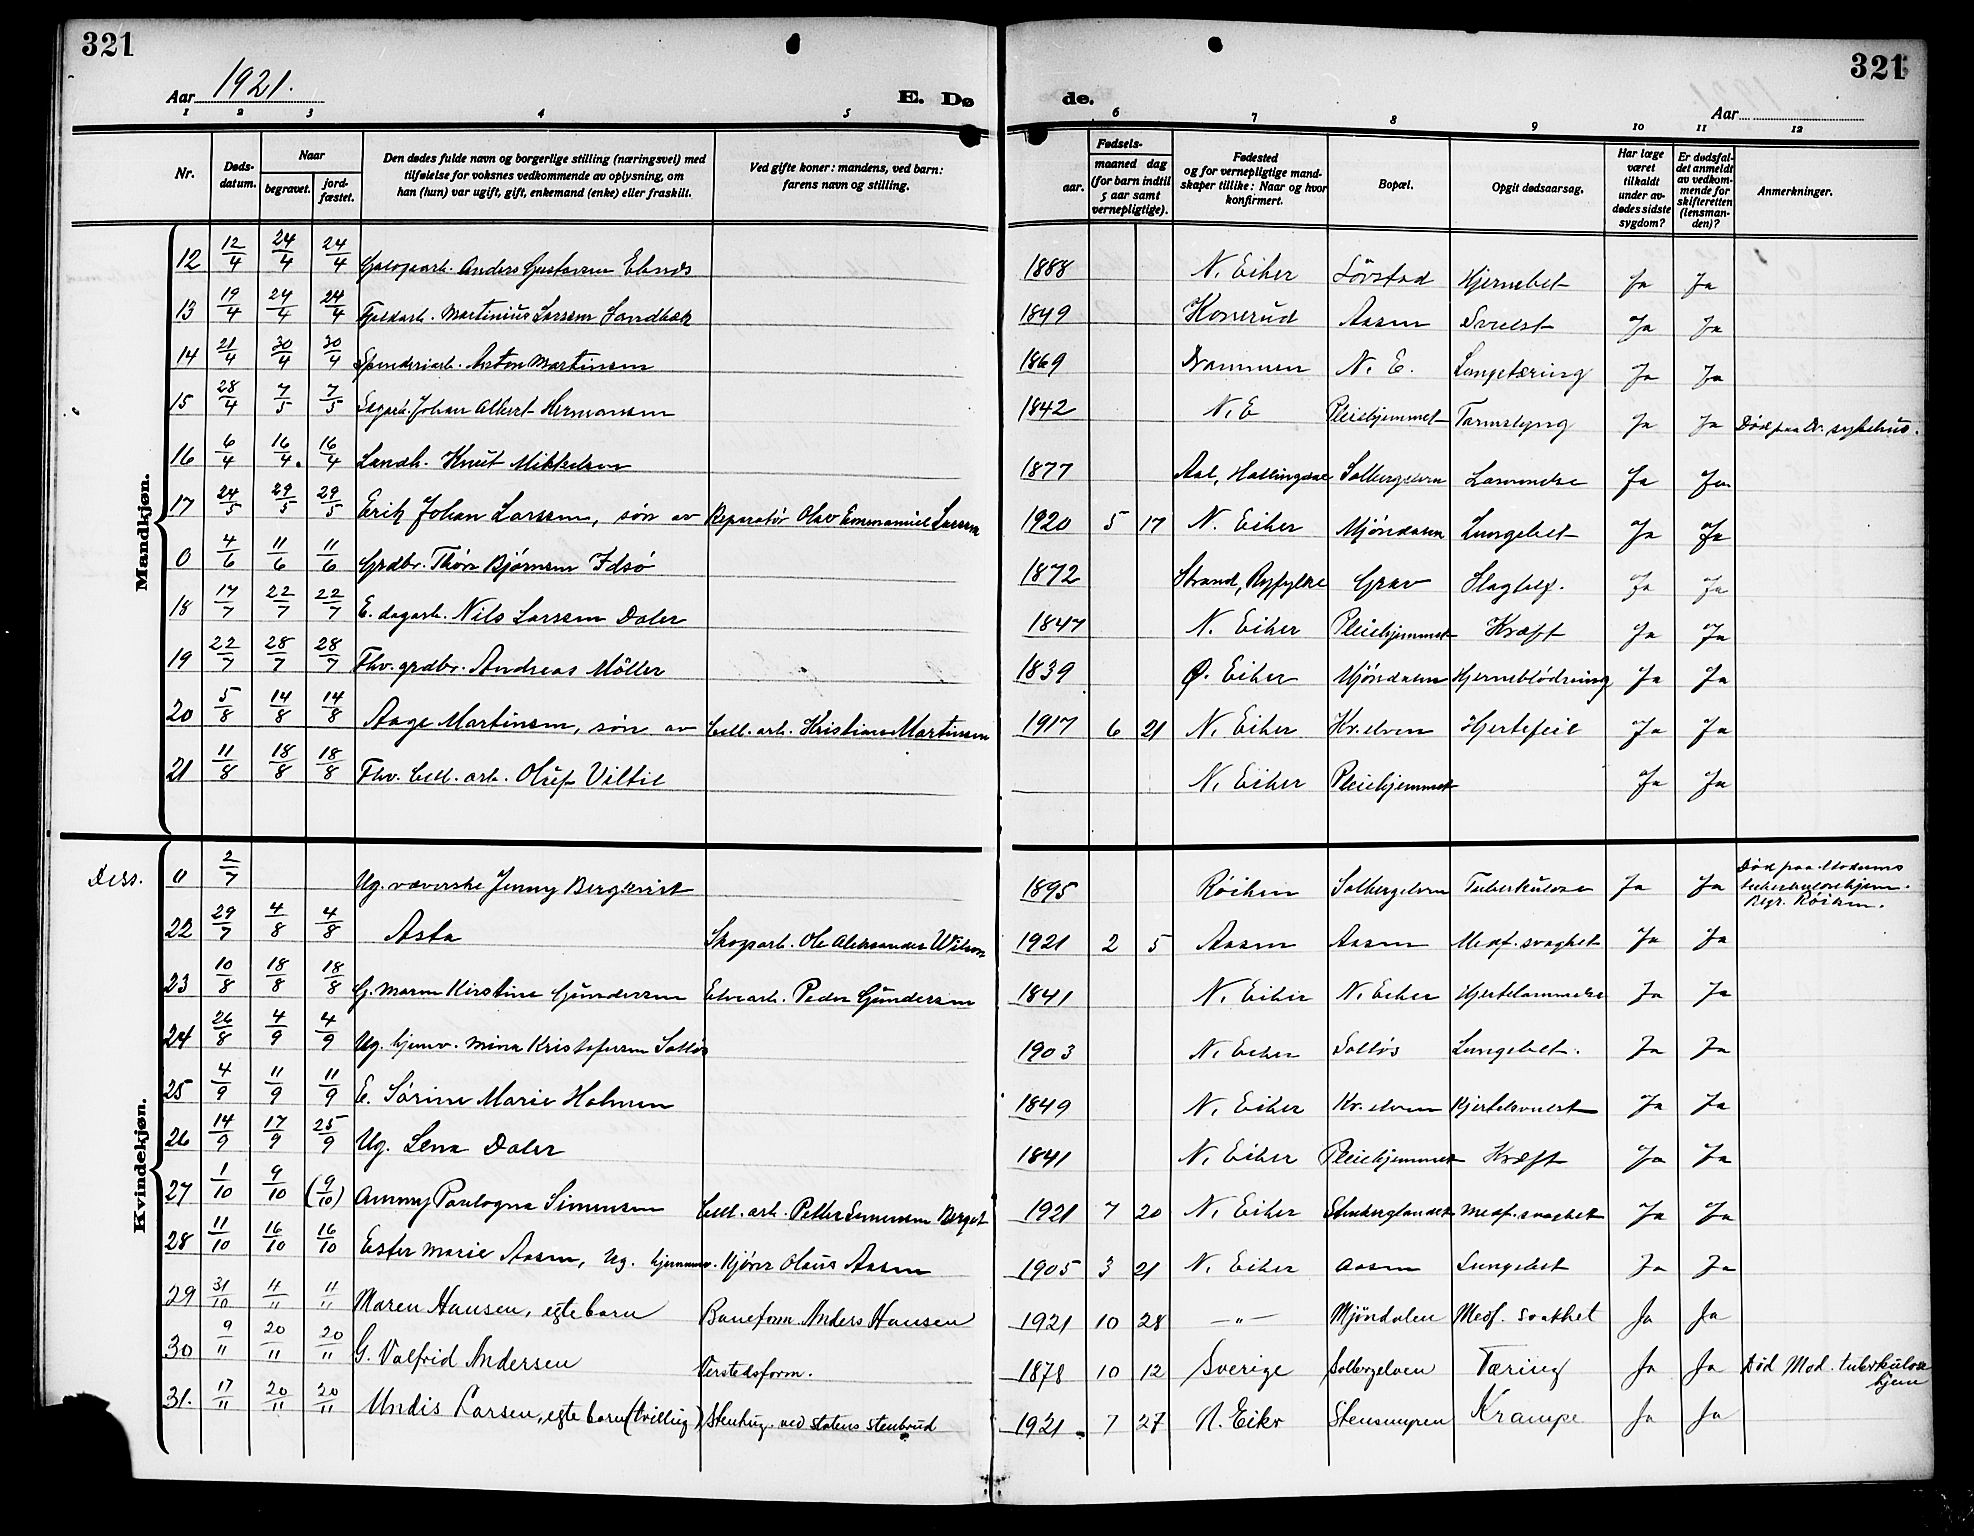 321
321
Aar 1921.
E. Dø
de.
Aar
1 2 3 4 5 6 7 8 9 10 11 12
Nr.
Døds-
datum.
Naar
begravet.
jord-
fæstet.
Den dødes fulde navn og borgerlige stilling (næringsvei) med
tilføielse for voksnes vedkommende av oplysning, om
han (hun) var ugift, gift, enkemand (enke) eller fraskilt.
Ved gifte koner: mandens, ved barn:
farens navn og stilling.
Fødsels-
aar.
maaned dag
(for barn indtil
5 aar samt
vernepligtige).
Fødested
og for vernepligtige mand-
skaper tillike: Naar og hvor
konfirmert.
Bopæl.
Opgit dødsaarsag.
Har læge
været
tilkaldt
under av-
dødes sidste
sygdom?
Er dødsfal-
det anmeldt
av vedkom-
mende for
skifteretten
(lensman-
den)?
Anmerkninger.
Mandkjøn.
12 12/4 24/4 24/4 Anders Gustavsen 1888 N. Eiker Hjernebet Ja Ja
13 19/4 24/4 24/4 Martinius Larsen Sandbæk 1849 Konnerud Aasen Svulst Ja Ja
14 21/4 30/4 30/4 Spinderiarb. Anton Martinsen 1869 Drammen N. E. Lungetæring Ja Ja
15 28/4 7/5 7/5 Sagarb. Johan Albert Hermansen 1842 N. E Pleiehjemmet Tarmslyng Ja Ja Død paa Dr. sykehus.
16 6/4 16/4 16/4 Landh. Knut Mikkelsen 1877 Aal, Hallingdal Solbergelven Ja Ja
17 24/5 29/5 29/5 Erik Johan Larsen, søn av Reparatør Olav Emmanuel Larsen 1920 5 17 N. Eiker Mjöndalen Lungebet Ja Ja
0 4/6 11/6 11/6 Grdbr. Thore Bjørnsen Idsö 1872 Strand, Ryfylke Grav Slagtilf. Ja Ja
18 17/7 22/7 22/7 E. dagarb. Nils Larsen Daler 1847 N. Eiker Pleiehjemmet Kræft Ja Ja
19 22/7 28/7 28/7 Fhv. grdbr. Andreas Möller 1839 Ø. Eiker Mjöndalen Hjerneblödning Ja Ja
20 5/8 14/8 14/8 Aage Martinsen, søn av Cell. arb. Kristian Martinsen 1917 6 21 N. Eiker Kr.elven Hjertefeil Ja Ja
21 11/8 18/8 18/8 Fhv. Cell. arb. Oluf Viltil N. Eiker Pleiehjemmet Ja Ja
Kvindekjøn.
Dess. 0 2/7 Ug. væverske Jenny Bergkvist 1895 Röiken Solbergelven Tuberkulose Ja Ja Död paa Modums
tuberkulosehjem.
Begr. Röiken.
22 29/7 4/8 4/8 Asta Skogarb. Ole Aleksander Wilson 1921 2 5 Aasen Aasen Medf. svaghet Ja Ja
23 10/8 18/8 18/8 G. Maren Kirstine Gundersen Elvearb. Peder Gundersen 1841 N. Eiker N. Eiker Hjertelammelse Ja Ja
24 26/8 4/9 4/9 Ug. hjemv. Mina Kristofersen 1903 N. Eiker Lungebet. Ja Ja
25 4/9 11/9 11/9 E. Sörine Marie Holmen 1849 N. Eiker Kr. elven Kjertelsvulst Ja Ja
26 14/9 17/9 25/9 Ug. Lena Daler 1841 N. Eiker Pleiehjemmet Kræft Ja Ja
27 1/10 9/10 (9/10) Ammy Simensen Cell. arb. Petter Simensen Berget 1921 7 20 N. Eiker Stenberglandet Medf. svaghet Ja Ja
28 11/10 16/10 16/10 Ester Marie Aasen, ug. hjemmev. Kjörer Olaus Aasen 1905 3 21 N. Eiker Aasen Lungebet Ja Ja
29 31/10 11/11 11/11 Maren Hansen, egte barn Baneform. Anders Hansen 1921 10 28 — „ — Mjöndalen Medf. svakhet Ja Ja
30 9/11 20/11 20/11 G. Valfrid Andersen Verstedsform. 1878 10 12 Sverige Solbergelven Tæring Ja Ja Död Mod. tuberkulose
hjem
31. 17/11 20/11 20/11 Undis Larsen, egte barn (tvilling) Stenhug. ved statens stenbrud 1921 7 27 N. Eiker Krampe Ja Ja